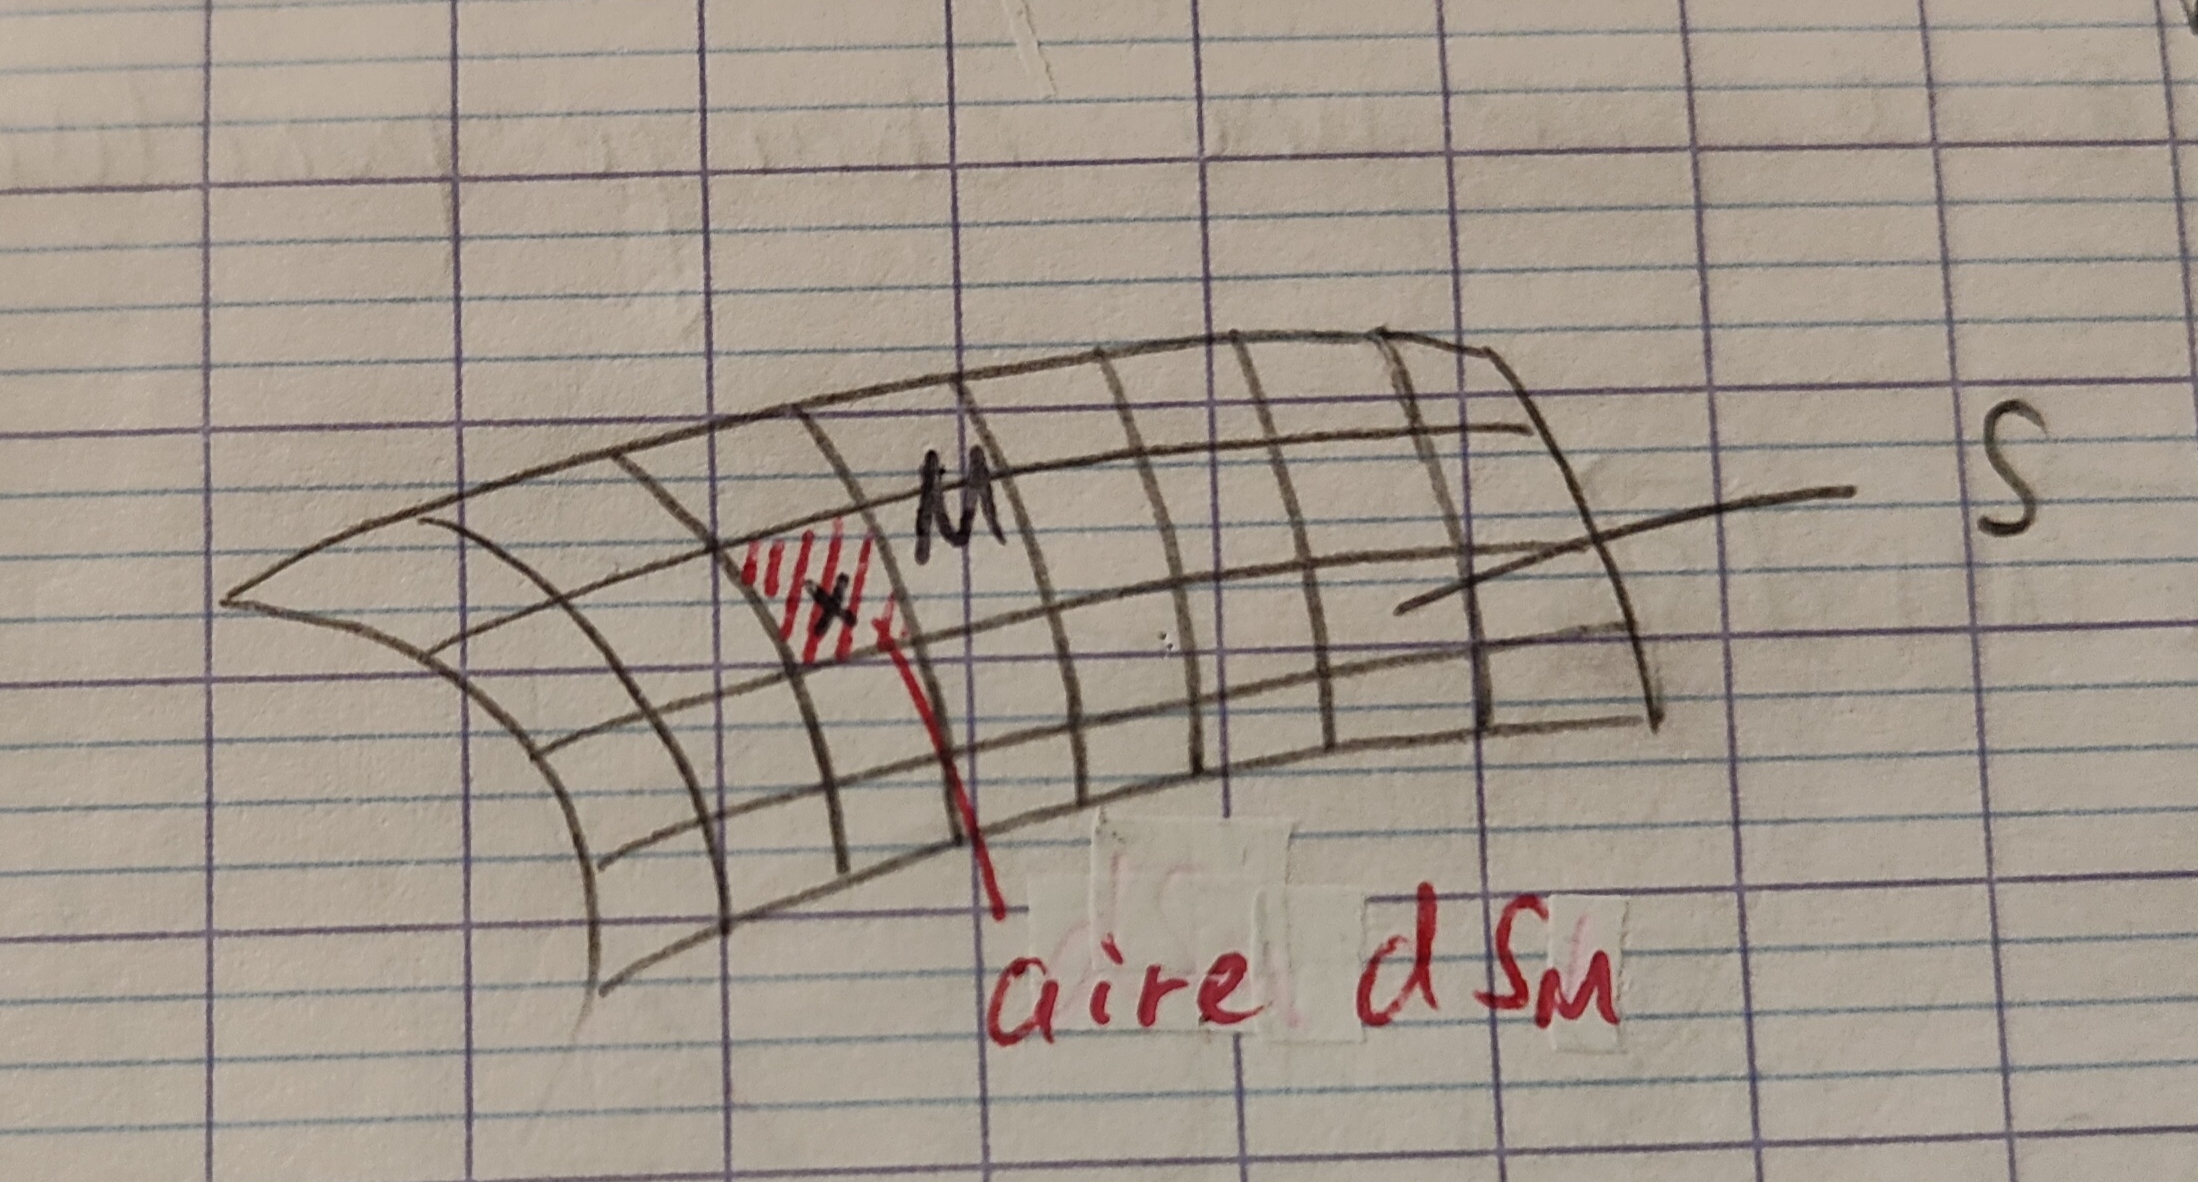 M
S
aire dSM